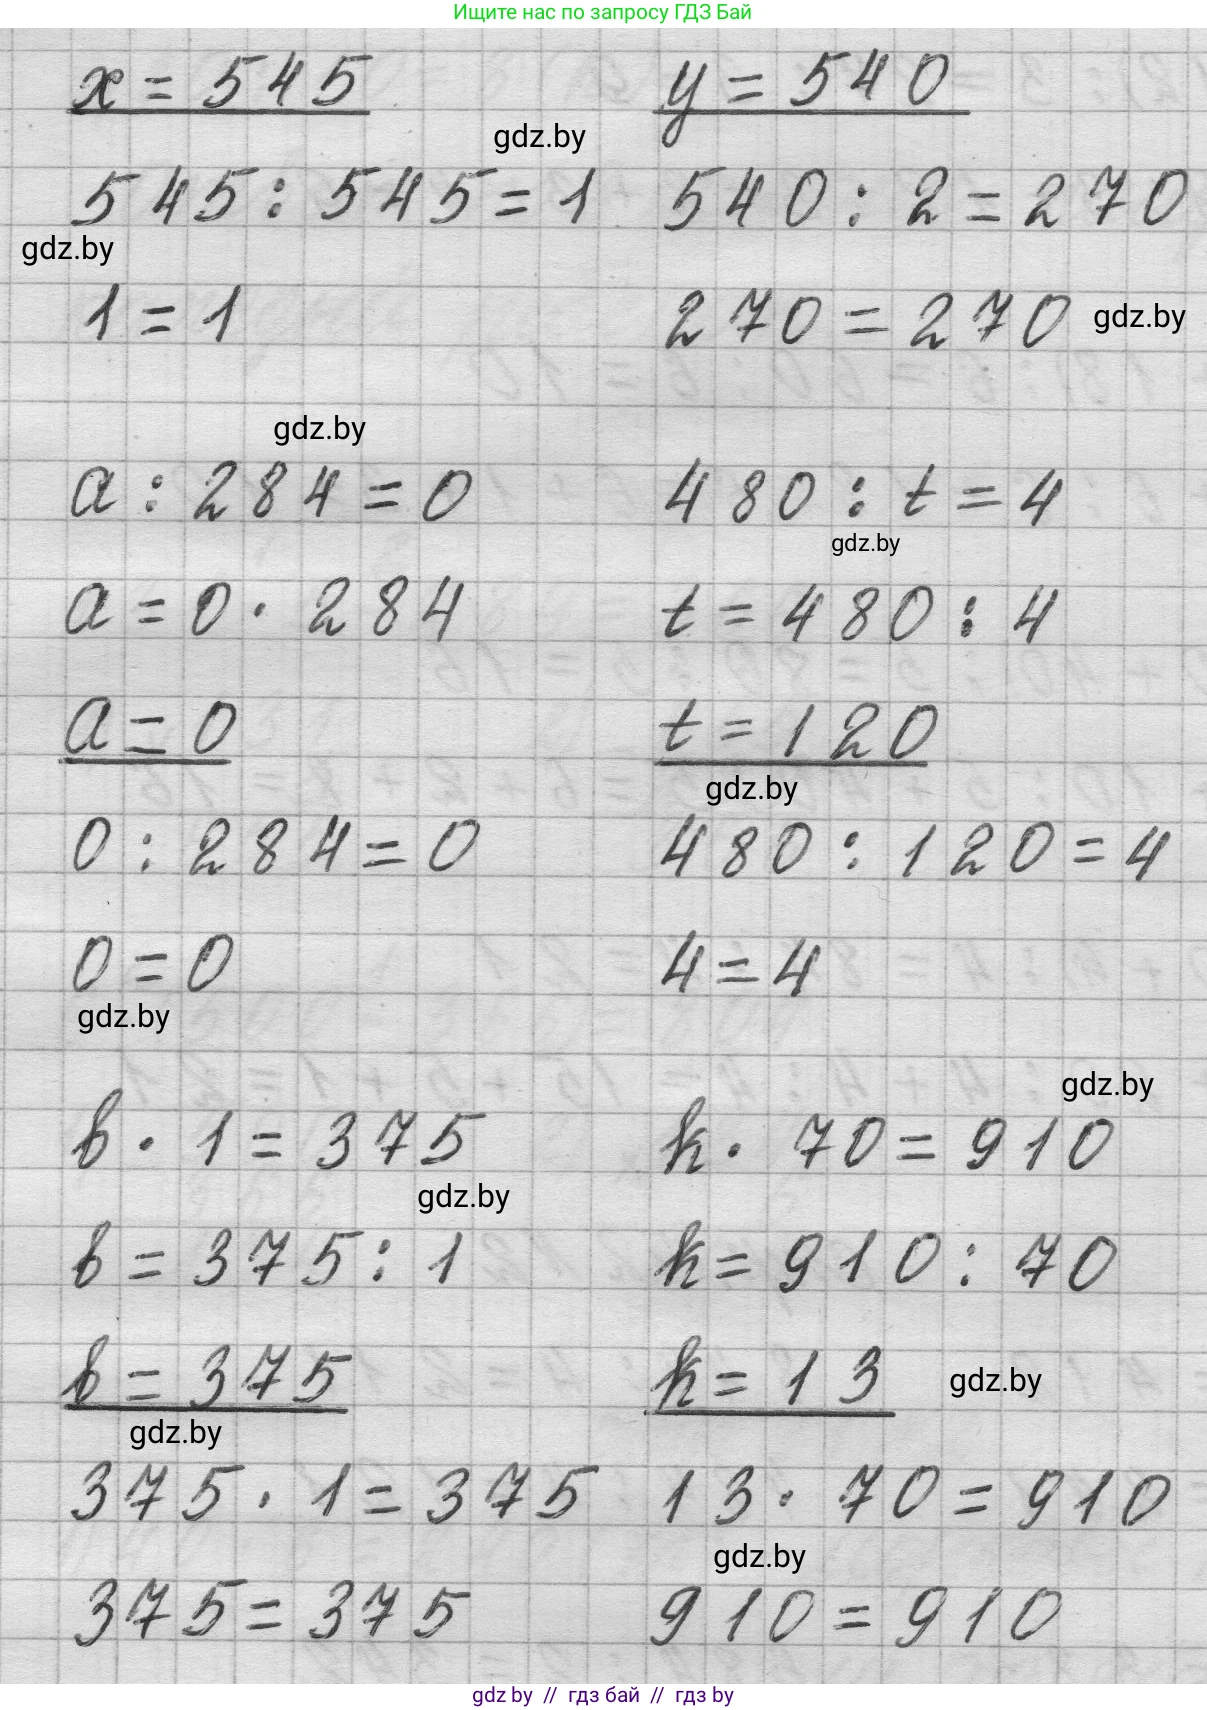 Ищите нас по запросу ГДЗ Бай
x = 545
y = 540
gdz.by
545 : 545 = 1
540 : 2 = 270
gdz.by
1 = 1
270 = 270
gdz.by
gdz.by
a : 284 = 0
480 : t = 4
gdz.by
a = 0 · 284
t = 480 : 4
a = 0
t = 120
gdz.by
0 : 284 = 0
480 : 120 = 4
0 = 0
4 = 4
gdz.by
gdz.by
b · 1 = 375
k · 70 = 910
gdz.by
b = 375 : 1
k = 910 : 70
b = 375
k = 13
gdz.by
gdz.by
375 · 1 = 375
13 · 70 = 910
gdz.by
375 = 375
910 = 910
gdz by // гдз бай // гдз by